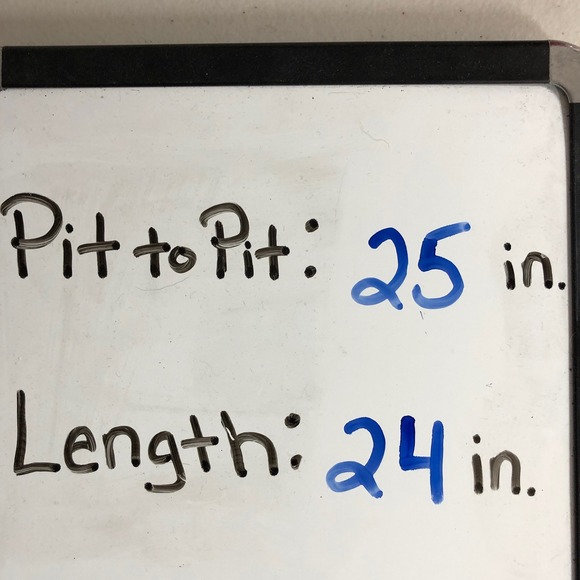 Pit to Pit: 25 in.
Length: 24 in.